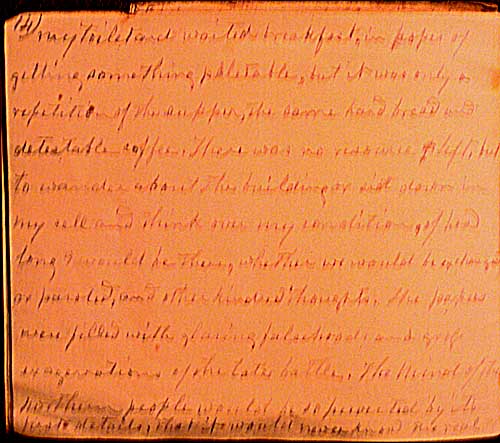 (4)
my toilet and waited breakfast, in hopes of
getting something palatable, but it was only a
repetition of the supper, the same hard bread and
detestable coffee. There was no resource left, but
to wander about the building or sit down in
my cell and think over my condition, of how
long I would be there, whether we would be exchanged
or paroled, and other kindred thoughts. The papers
were filled with glaring falsehoods and gross
exagerations of the late battles. The mind of the
northern people would be so perverted by its
details, that it would never know